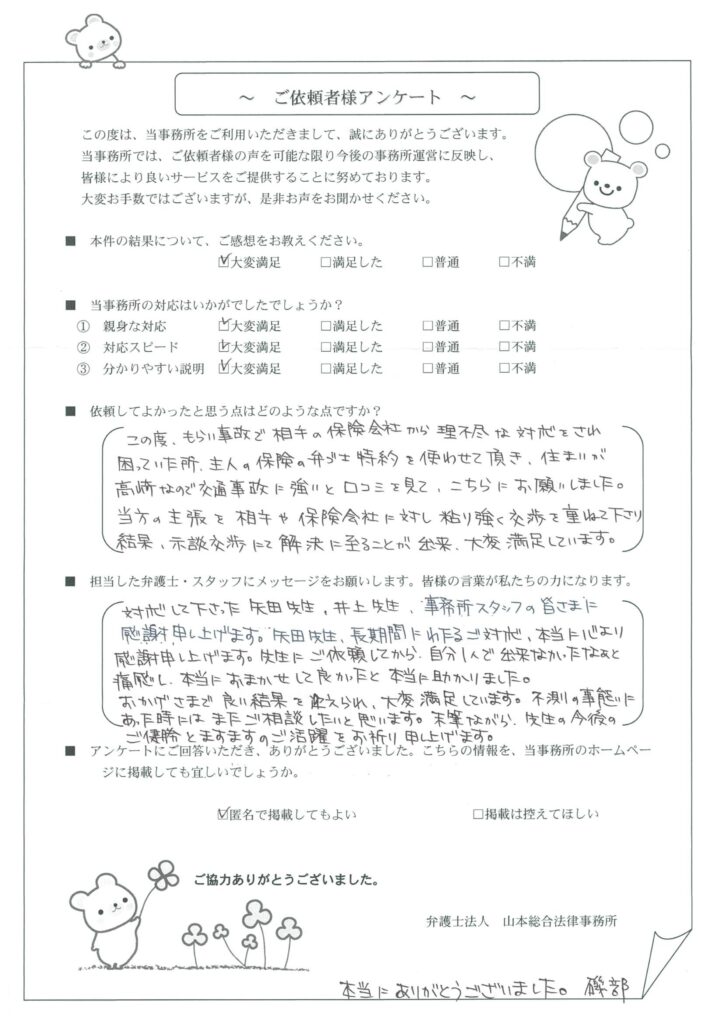 ～　ご依頼者様アンケート　～
この度は、当事務所をご利用いただきまして、誠にありがとうございます。
当事務所では、ご依頼者様の声を可能な限り今後の事務所運営に反映し、
皆様により良いサービスをご提供することに努めております。
大変お手数ではございますが、是非お声をお聞かせください。
■　本件の結果について、ご感想をお教えください。
☑大変満足　□満足した　□普通　□不満
■　当事務所の対応はいかがでしたでしょうか？
①　親身な対応　☑大変満足　□満足した　□普通　□不満
②　対応スピード　☑大変満足　□満足した　□普通　□不満
③　分かりやすい説明　☑大変満足　□満足した　□普通　□不満
■　依頼してよかったと思う点はどのような点ですか？
この度、もらい事故で相手の保険会社から理不尽な対応をされ
困っていた所、主人の保険の弁ゴ士特約を使わせて頂き、住まいが
高崎なので交通事故に強いと口コミを見て、こちらにお願いしました。
当方の主張を相手や保険会社に対し粘り強く交渉を重ねて下さり
結果、示談交渉にて解決に至ることが出来、大変満足しています。
■　担当した弁護士・スタッフにメッセージをお願いします。皆様の言葉が私たちの力になります。
対応して下さった矢田先生、井上先生、事務所スタッフの皆さまに
感謝申し上げます。矢田先生、長期間にわたるご対応、本当に心より
感謝申し上げます。先生にご依頼してから、自分1人で出来なかったなぁと
痛感し、本当におまかせして良かったと本当に助かりました。
おかげさまで良い結果を迎えられ、大変満足しています。不測の事態に
あった時にはまたご相談したいと思います。末筆ながら、先生の今後の
ご健勝とますますのご活躍をお祈り申し上げます。
■　アンケートにご回答いただき、ありがとうございました。こちらの情報を、当事務所のホームペー
ジに掲載しても宜しいでしょうか。
☑匿名で掲載してもよい　□掲載は控えてほしい
ご協力ありがとうございました。
弁護士法人　山本総合法律事務所
本当にありがとうございました。磯部